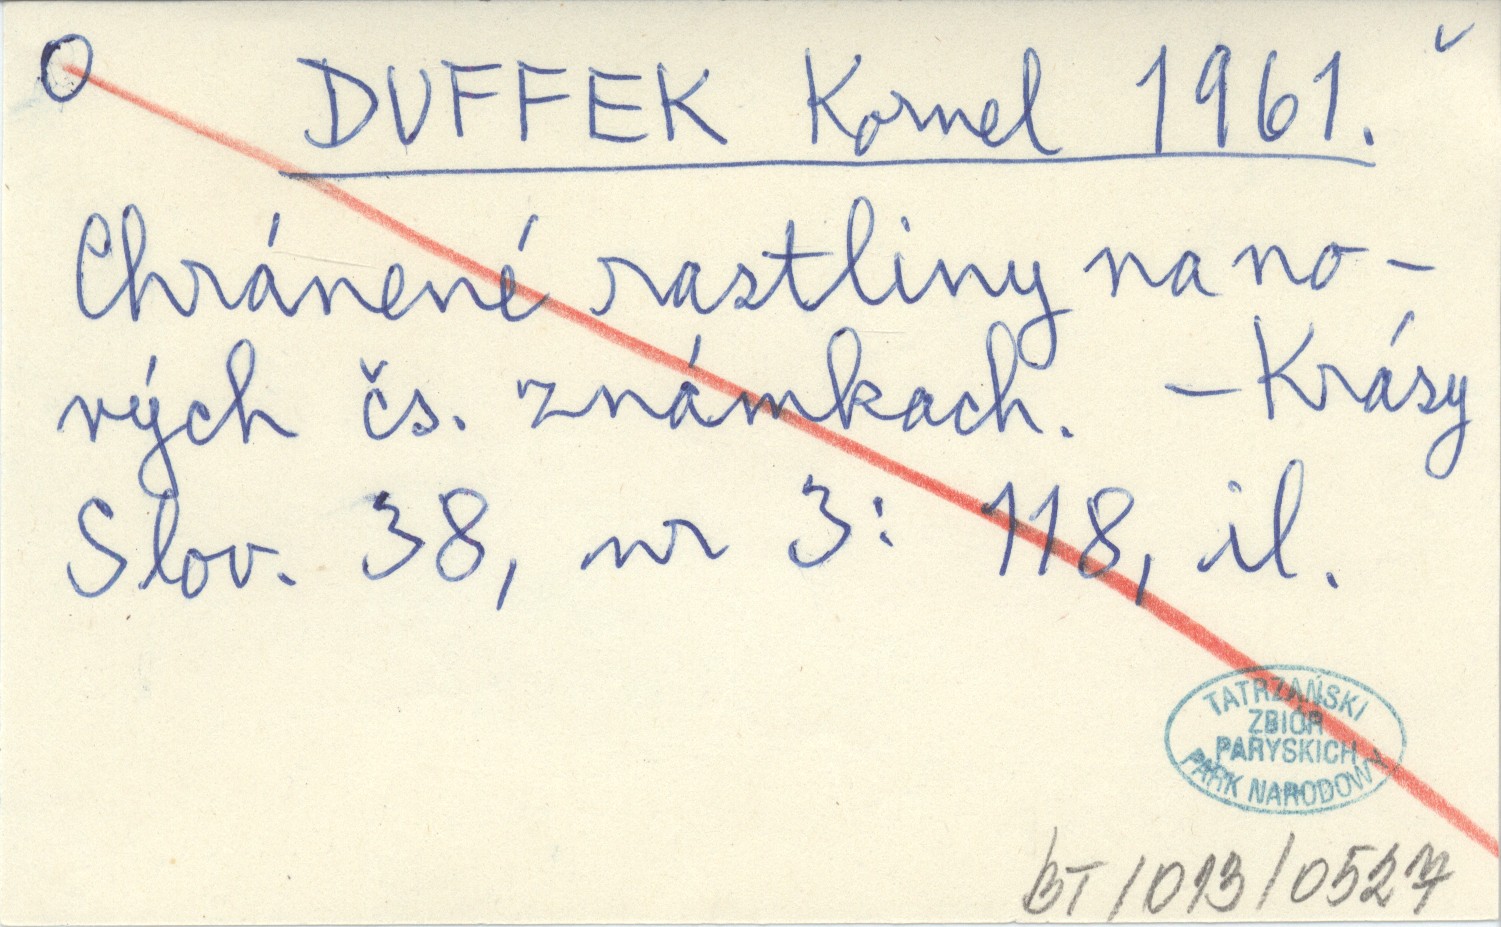 O DUFFEK Kornel 1961. ˇ
Chránené rastliny na no-
vých čs. známkach. – Krásy
Slov. 38, nr 3: 118, il.
TATRZAŃSKI
ZBIÓR
PARYSKICH
PARK NARODOWY
BT/013/0527